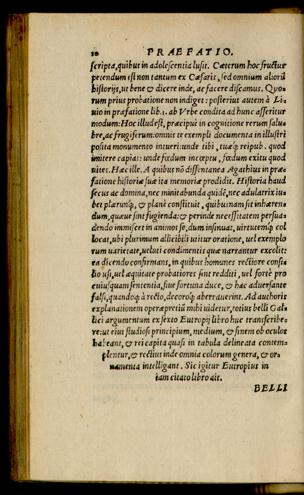 20 PRAEFATIO.
scripta, quibus in adolescentia lusit. Cæterum hoc fructus
petendum est non tantum ex Cæsaris, sed omnium aliorũ
historijs, ut bene & dicere inde, ac facere discamus. Quo
rum prius probatione non indiget: posterius autem à Li
uio in præfatione lib. 1. ab Vrbe condita ad hunc asseritur
modum: Hoc illud est, præcipuè in cognitione rerum salu
bre, ac frugiferum: omnis te exempli documenta in illustri
posita monumento intueri: unde tibi, tuæq́; reipub. quod
imitere capias: unde fœdum inceptu, fœdum exitu quod
uites. Hæc ille. A quibus nõ dissentanea Agathius in præ-
fatione historiæ suæ ita memoriæ prodidit. Historia haud
secus ac domina, nec minitabunda quidẽ, nec adulatrix iu-
bet plærunq́;, & planè constituit, quibusnam sit inhæren-
dum, quæue sint fugienda: & perinde necessitatem persua-
dendo immiscet in animos se, dum insinuat, uirtutemq́; col
locat, ubi plurimum allicibili utitur oratione, uel exemplo
rum uarietate, ueluti condimentis quæ narrantur excolit:
ea dicendo confirmans, in quibus homines rectiore consi-
lio usi, uel æquitate probatiores sint redditi, uel fortè pro
cuiusquam sententia, siue fortuna duce, & hac aduersante
falsi, quandoq́; à recto, decoroq́; aberrauerint. Ad authoris
explanationem operæpretiũ mihi uidetur, totius belli Gal
lici argumentum ex sexto Eutropij libro huc transcribe-
re: ut eius studiosi principium, medium, & finem ob oculos
habeant, & rei capita quasi in tabula delineata contem-
plentur, & rectius inde omnia colorum genera, & or-
namenta intelligant. Sic igitur Eutropius in
iam citato libro ait.
BELLI